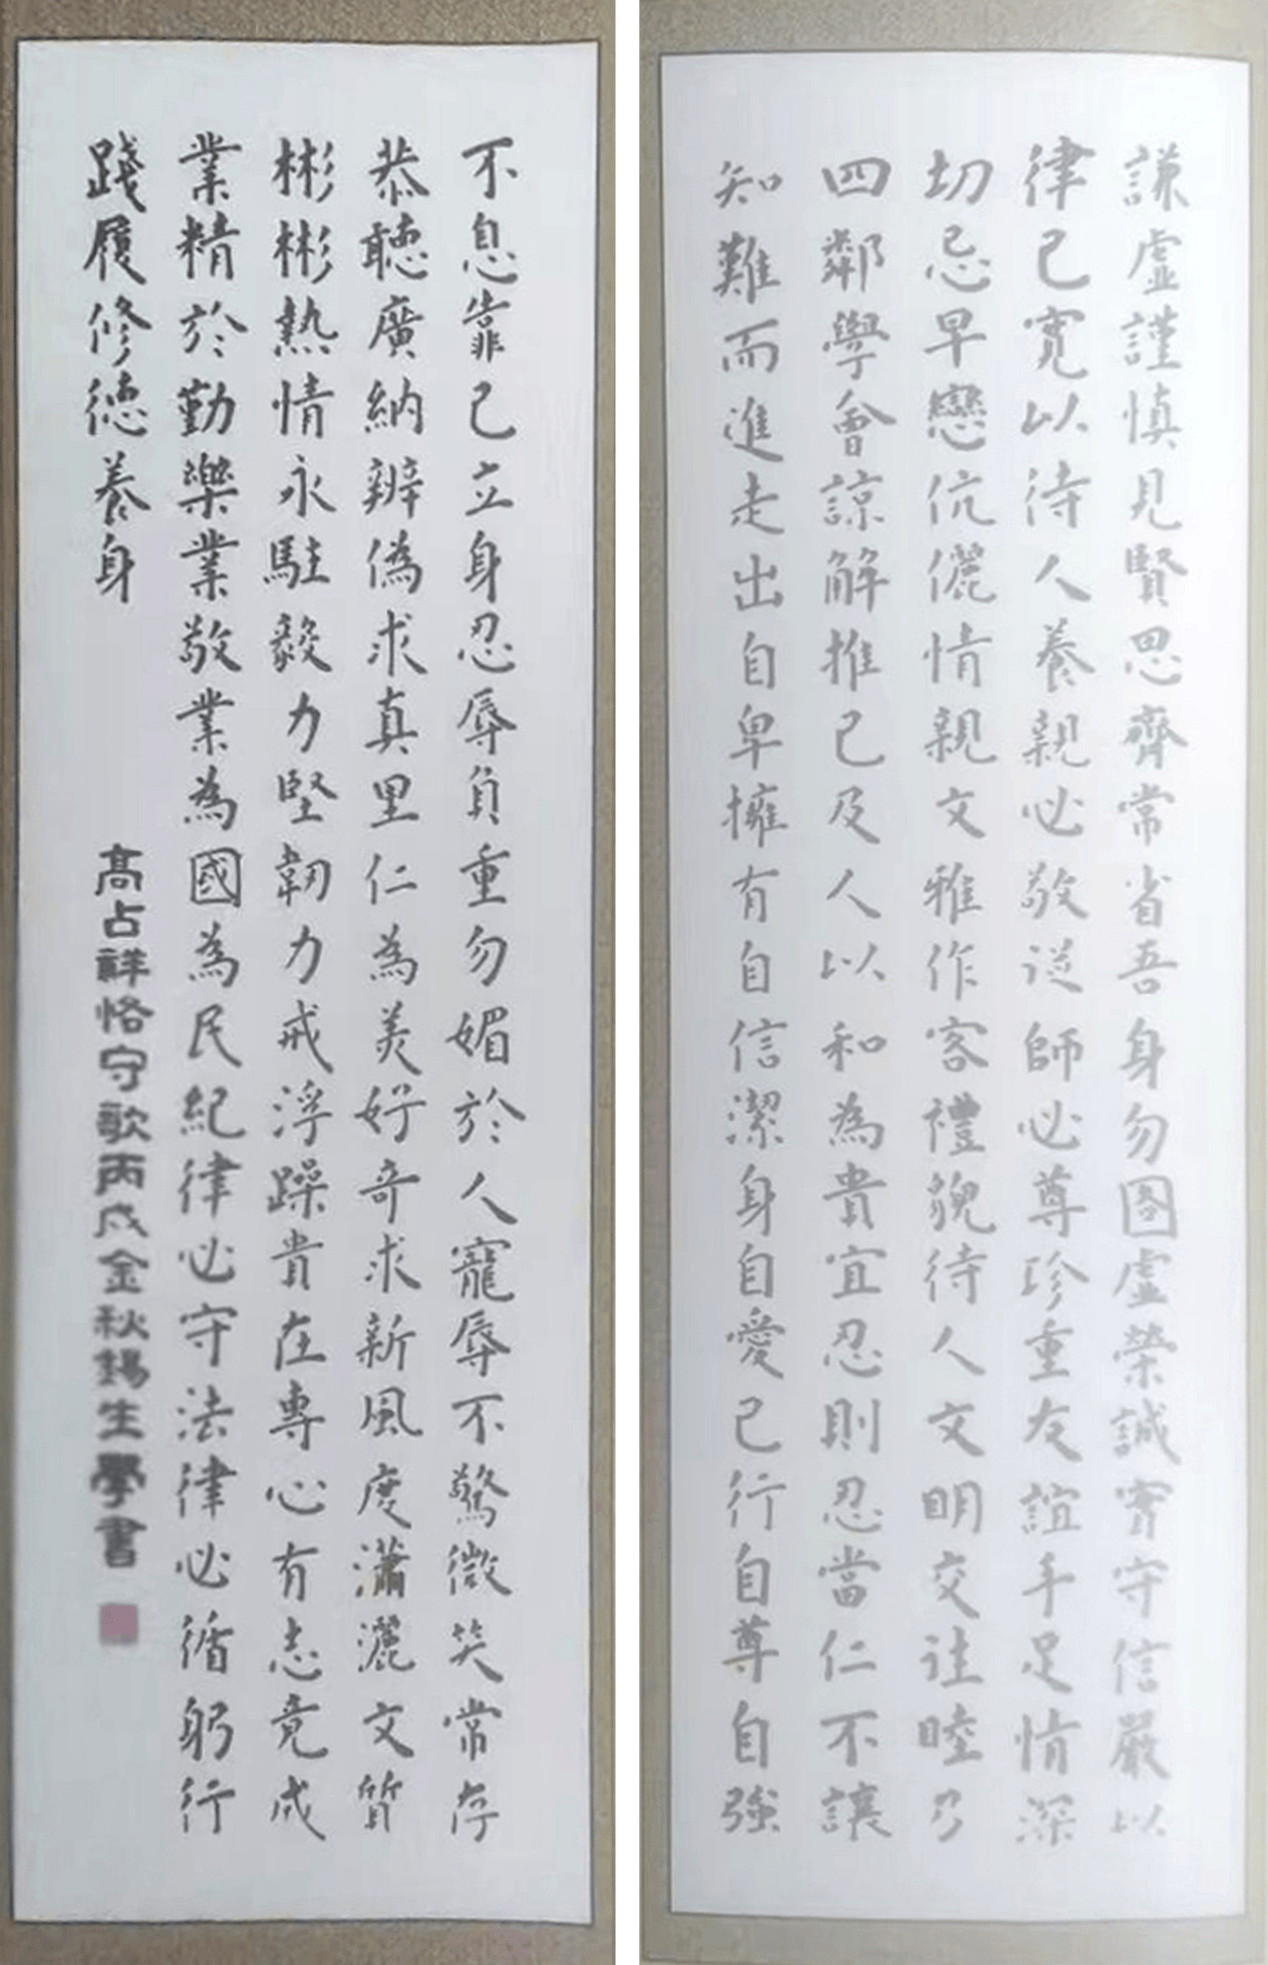 謙虛謹慎見賢思齊常省吾身勿圖虛榮誠實守信嚴以
律己寬以待人養親必敬從師必尊珍重友誼手足情深
切忌早戀伉儷情親文雅作客禮貌待人文明交往睦乃
四鄰學會諒解推己及人以和為貴宜忍則忍當仁不讓
知難而進走出自卑擁有自信潔身自愛己行自尊自強
不息靠己立身忍辱負重勿媚於人寵辱不驚微笑常存
恭聽廣納辨偽求真里仁為美好奇求新風度瀟灑文質
彬彬熱情永駐毅力堅韌力戒浮躁貴在專心有志竟成
業精於勤樂業敬業為國為民紀律必守法律必循躬行
踐履修德養身
高占祥恪守歌丙戌金秋錫生學書